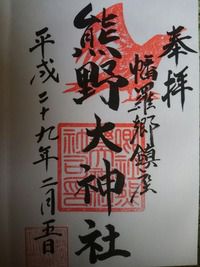 奉拝
幡羅郷鎮座
熊野大神社
平成二十九年二月五日